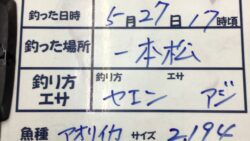 釣った日時 5月27日17時頃
釣った場所 一本松
釣り方 エサ 釣り方 ヤエン エサ アジ
魚種 アオリイカ サイズ 2,194